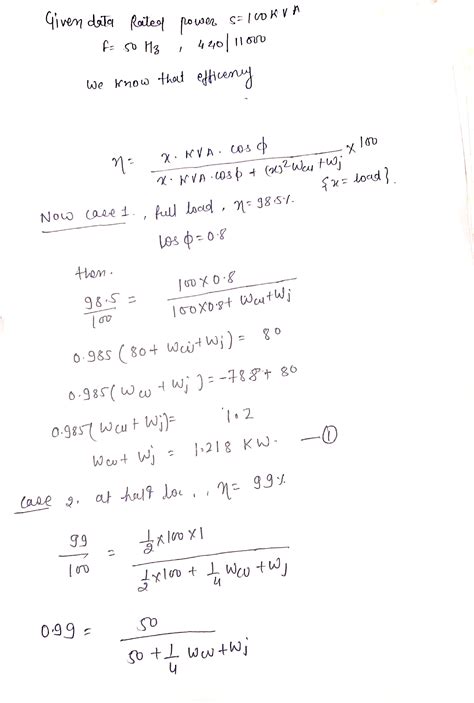 Given data Rated power S=100KVA
f= 50 Hz , 440/11000
We know that efficeny
η= x. KVA. cosϕ / x. KVA. cosϕ + (x)²Wcu+Wj × 100
{x= load}.
Now case 1., full load, η=98.5%
Cosϕ=0.8
then.
98.5/100 = 100×0.8 / 100×0.8+ Wcu+Wj
0.985 (80+ Wcu+Wj) = 80
0.985(Wcu + Wj)= -788+ 80
0.985(Wcu + Wj)= 1.2
Wcu+ Wj = 1.218 KW. —①
case 2. at half loa.., η= 99%
99/100 = 1/2×100×1 / 1/2×100 + 1/4 Wcu+Wj
0.99= 50 / 50+1/4 Wcu+Wj